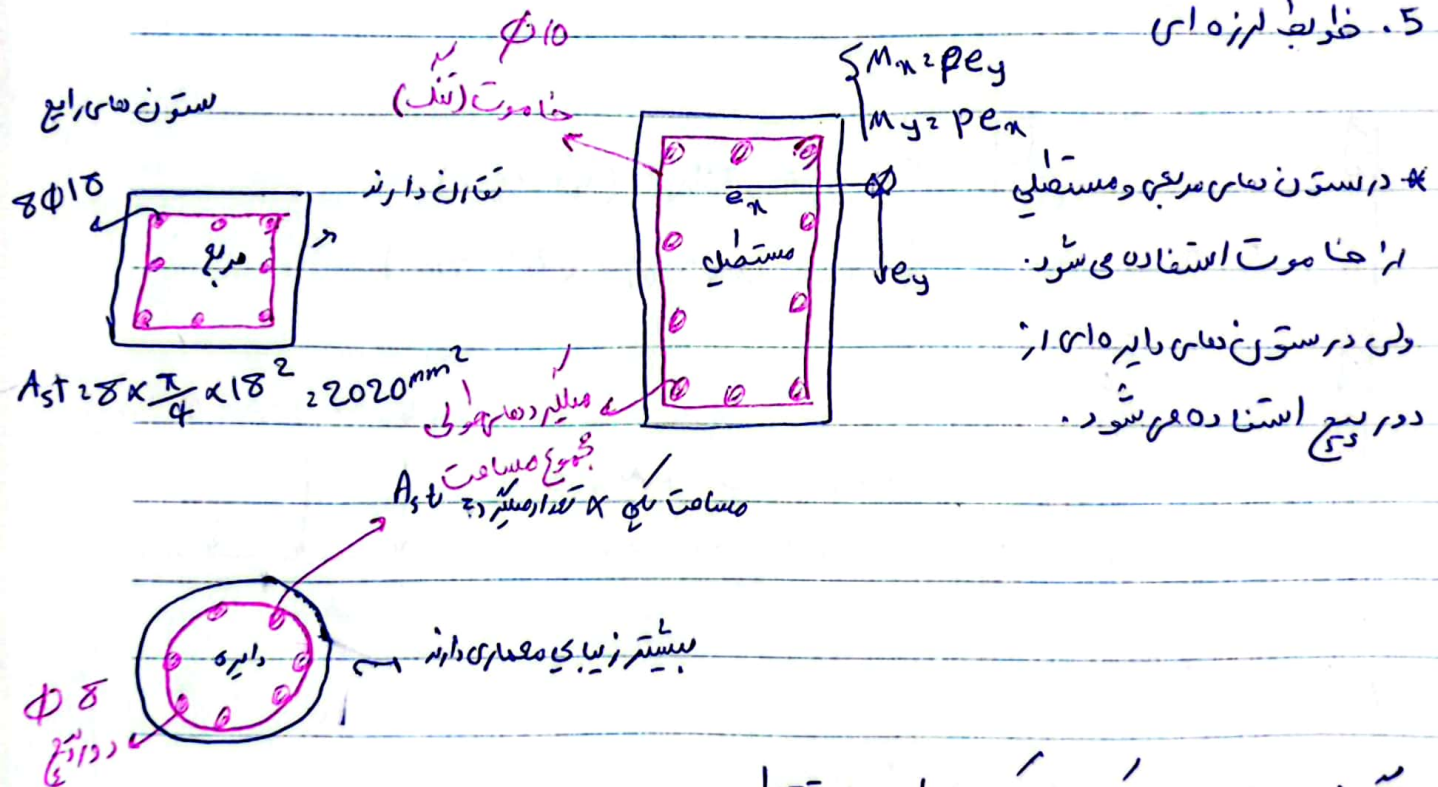 5. ضوابط لرزه ای
Φ10
خاموت (تنگ)
Mx = Pey
My = Pex
ستون های رایج
تقارن دارند
8Φ18
مربع
ex
ey
مستطیل
* در ستون های مربعی و مستطیلی
از خاموت استفاده می شود.
ولی در ستون های دایره ای از
دورپیچ استفاده می شود.
Ast = 8 × π/4 × 18² = 2020 mm²
میلگردهای طولی
مجموع مساحت
Ast = تعداد میلگرد × مساحت یکی
دایره
بیشتر زیبایی معماری دارند
Φ8
دورپیچ